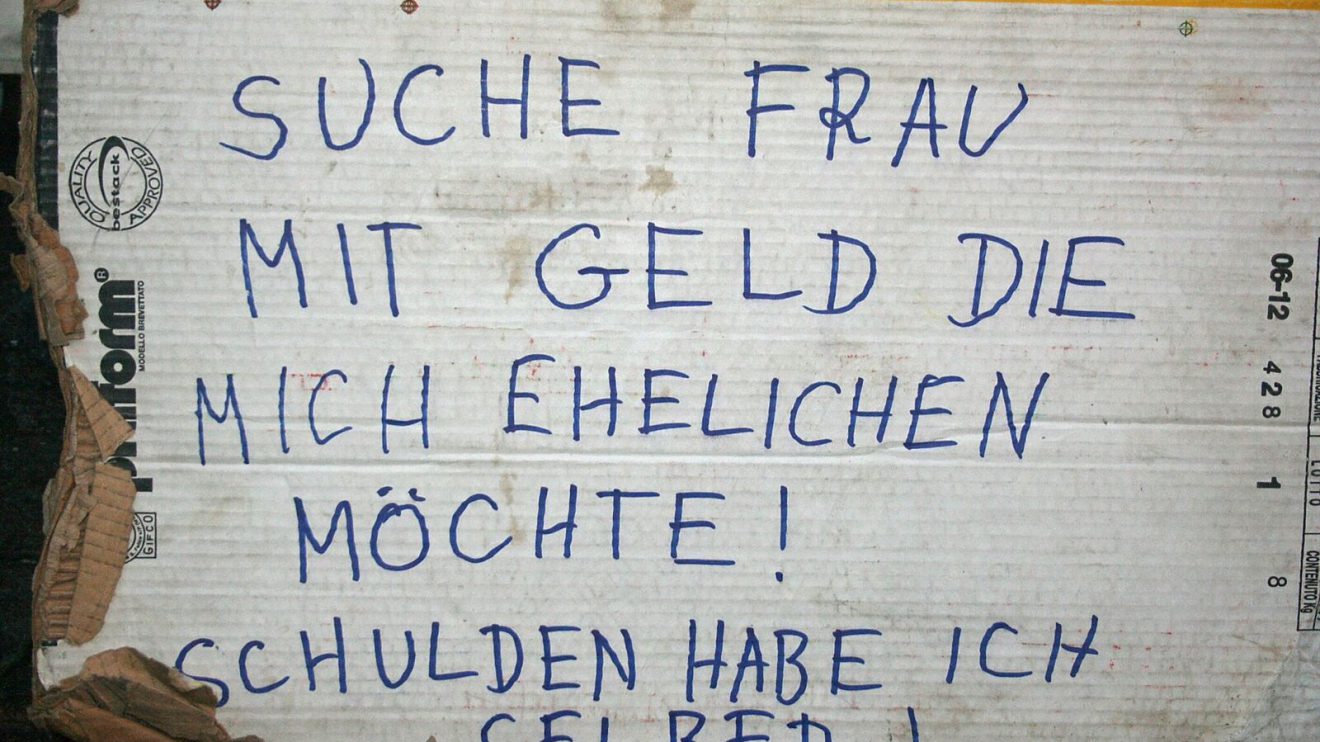 SUCHE FRAU
MIT GELD DIE
MICH EHELICHEN
MÖCHTE!
SCHULDEN HABE ICH
SELBER!
QUALITY
bestack
APPROVED
MODELLO BREVETTATO
GIFCO
06-12 428 1 8
LOTTO
CONTENUTO Kg